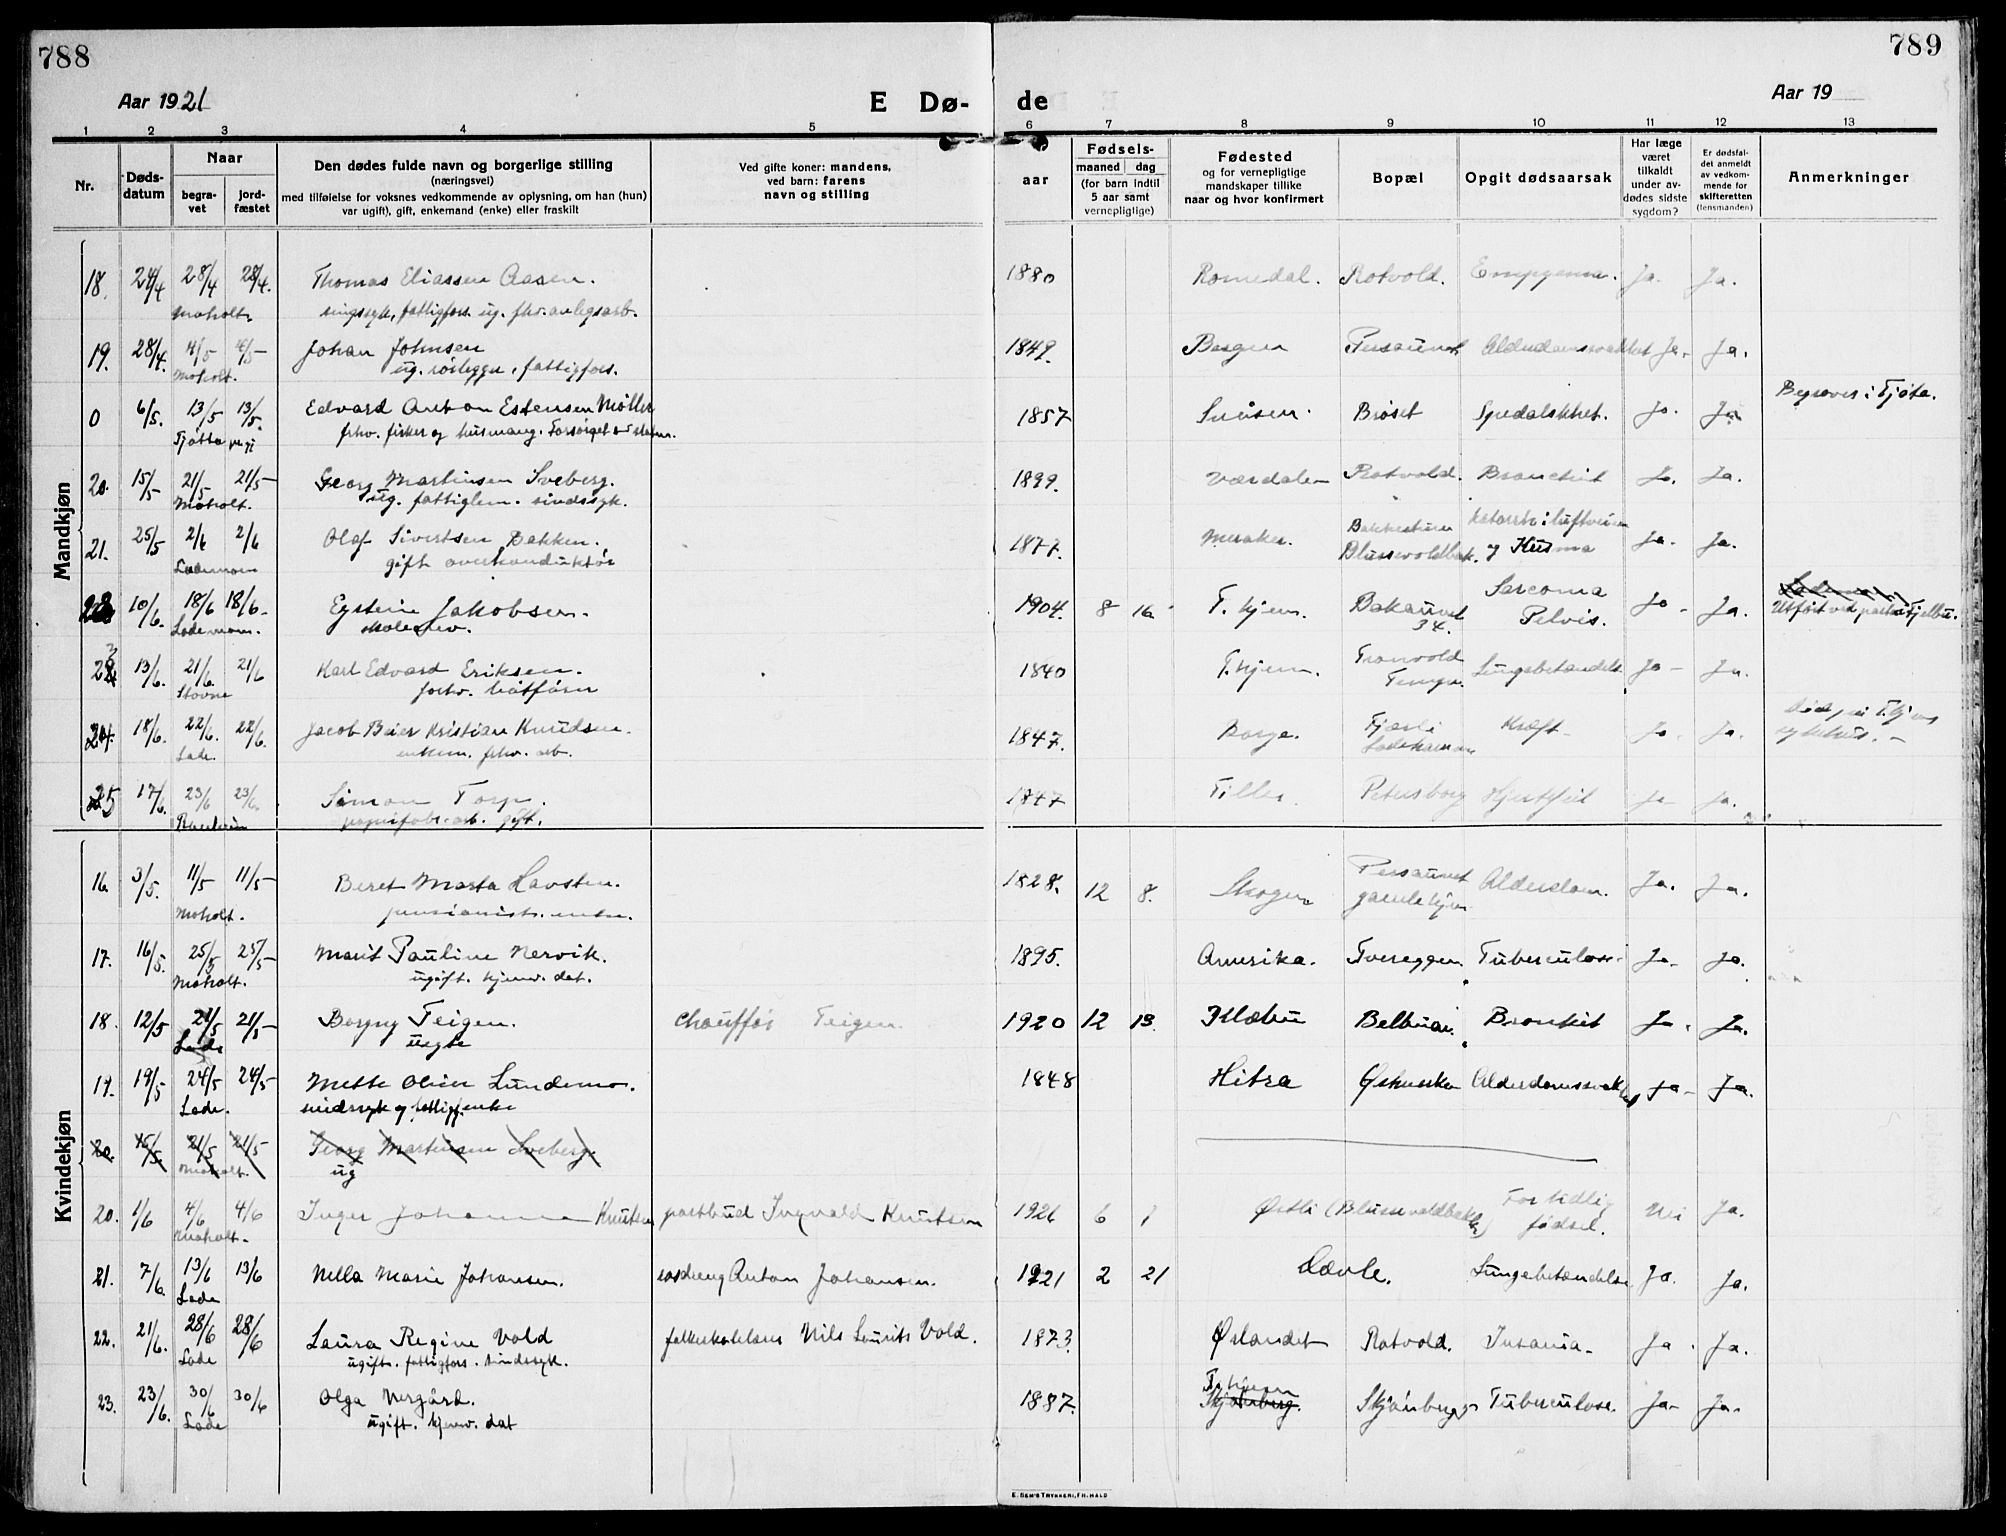 788
789
Aar 1921
E Dø-
de
Aar 19
1 2 3 4 5 6 7 8 9 10 11 12 13
Nr.
Døds-
datum
Naar
begra-
vet
jord-
fæstet
Den dødes fulde navn og borgerlige stilling
(næringsvei)
med tilføielse for voksnes vedkommende av oplysning, om han (hun)
var ugift), gift, enkemand (enke) eller fraskilt
Ved gifte koner: mandens,
ved barn: farens
navn og stilling
aar
Fødsels-
maaned dag
(for barn indtil
5 aar samt
vernepligtige)
Fødested
og for vernepligtige
mandskaper tillike
naar og hvor konfirmert
Bopæl
Opgit dødsaarsak
Har læge
været
tilkaldt
under av-
dødes sidste
sygdom?
Er dødsfal-
det anmeldt
av vedkom-
mende for
skifteretten
(lensmanden)
Anmerkninger
Mandkjøn
18. 24/4 28/4 28/4. Thomas Eliassen Aasen. 1880 Romedal. Rotvold. Ja. Ja.
Moholt. sinssyk, fattigfors. ug. fhv. anlegsarb.
19. 28/4. 4/5 4/5 Johan Johnsen 1849. Bergen Persaunet Alderdomssvakhet Ja. Ja.
Moholt. ug. rørlegger, fattigfors.
0 6/5. 13/5 13/5. Edvard Anton Estensen Møller 1857 Snåsen. Brøset Spedalskhet. Ja. Ja. Begraves i Tjøtta.
Tjøtta fhv. fisker og husmang. Forsørget av staten.
20. 15/5 21/5 21/5 Georg Martinsen Sveberg. 1899. Værdalen Rotvold. Bronchit Ja. Ja.
Moholt. ug. fattiglem. sindssyk.
21. 25/5 2/6 2/6 Olaf Sivertsen Bakken. 1877. Meraker. Blussvoldbak. Katarrh i luftveiene Ja. Ja.
Lademoen gift overkonduktør
10/6. 18/6 18/6 Eystein Jakobsen. 1904. 8 16 T.hjem. Bakaunet 34. Sarcoma Pelvis. Ja Ja. Utført ved pastor Fjelbu.
Lademoen. skoleelev.
23 13/6. 21/6 21/6 Karl Edvard Eriksen. 1840 T.hjem. Tronvold Tempe. Lungebetændelse Ja Ja.
Stavne forhv. båtfører
24. 18/6. 22/6. 22/6. Jacob Beier Kristian Knudsen. 1847. Borge. Fjærli Ladehammeren Kræft Ja. Ja. Død på T.hjems sykehus.
Lade. enkem. fhv. arb.
25 17/6. 23/6 23/6. Simon Torp. 1847 Tiller. Petersborg Hjertefeil Ja Ja.
papirfabr. arb. gift.
Kvindekjøn
16. 3/5. 11/5 11/5 Beret Marta Havsten. 1828. 12 8. Skogn Persaunet gamlehjem Alderdom. Ja. Ja.
Moholt. pensionist. enke.
17. 16/5. 25/5 25/5 Marit Pauline Nervik. 1895. Amerika. Tvereggen. Tuberculose Ja. Ja.
Moholt. ugift. hjemv. dat.
18. 12/5 21/5 21/5 Borgny Teigen. chauffør Teigen. 1920 12 13. Klæbu Belbuan. Bronkit Ja. Ja.
Lade uegte
19. 19/5 24/5 24/5 Mette Oline Lundemo. 1848 Hitra Østmarka Alderdomssvakhet Ja Ja.
Lade. sindssyk og fattig, enke
20. 15/5. 21/5 21/5 Georg Martinsen Sveberg.
Moholt. ug
20. 1/6 4/6 4/6 Inger Johanna Knutsen postbud Ingvald Knutsen 1921 6 1 Østli (Blussvoldbakk.) For tidlig fødsel. Nei Ja.
Moholt.
21. 7/6. 13/6 13/6 Nella Marie Johansen. Anton Johansen. 1921 2 21 Lungebetændelse Ja. Ja.
Lade
22. 21/6. 28/6 28/6 Laura Regine Vold Nils Laurits Vold. 1873. Ørlandet Rotvold. Insania. Ja Ja.
Lade ugift. fattigfors. sindssyk.
23. 23/6. 30/6 30/6 Olga Nergård. 1887. T.hjem Skjønberg. Skjønberg Tuberculose. Ja Ja.
Lade ugift. hjemv. dat
E. SEM'S TRYKKERI, FR.HALD